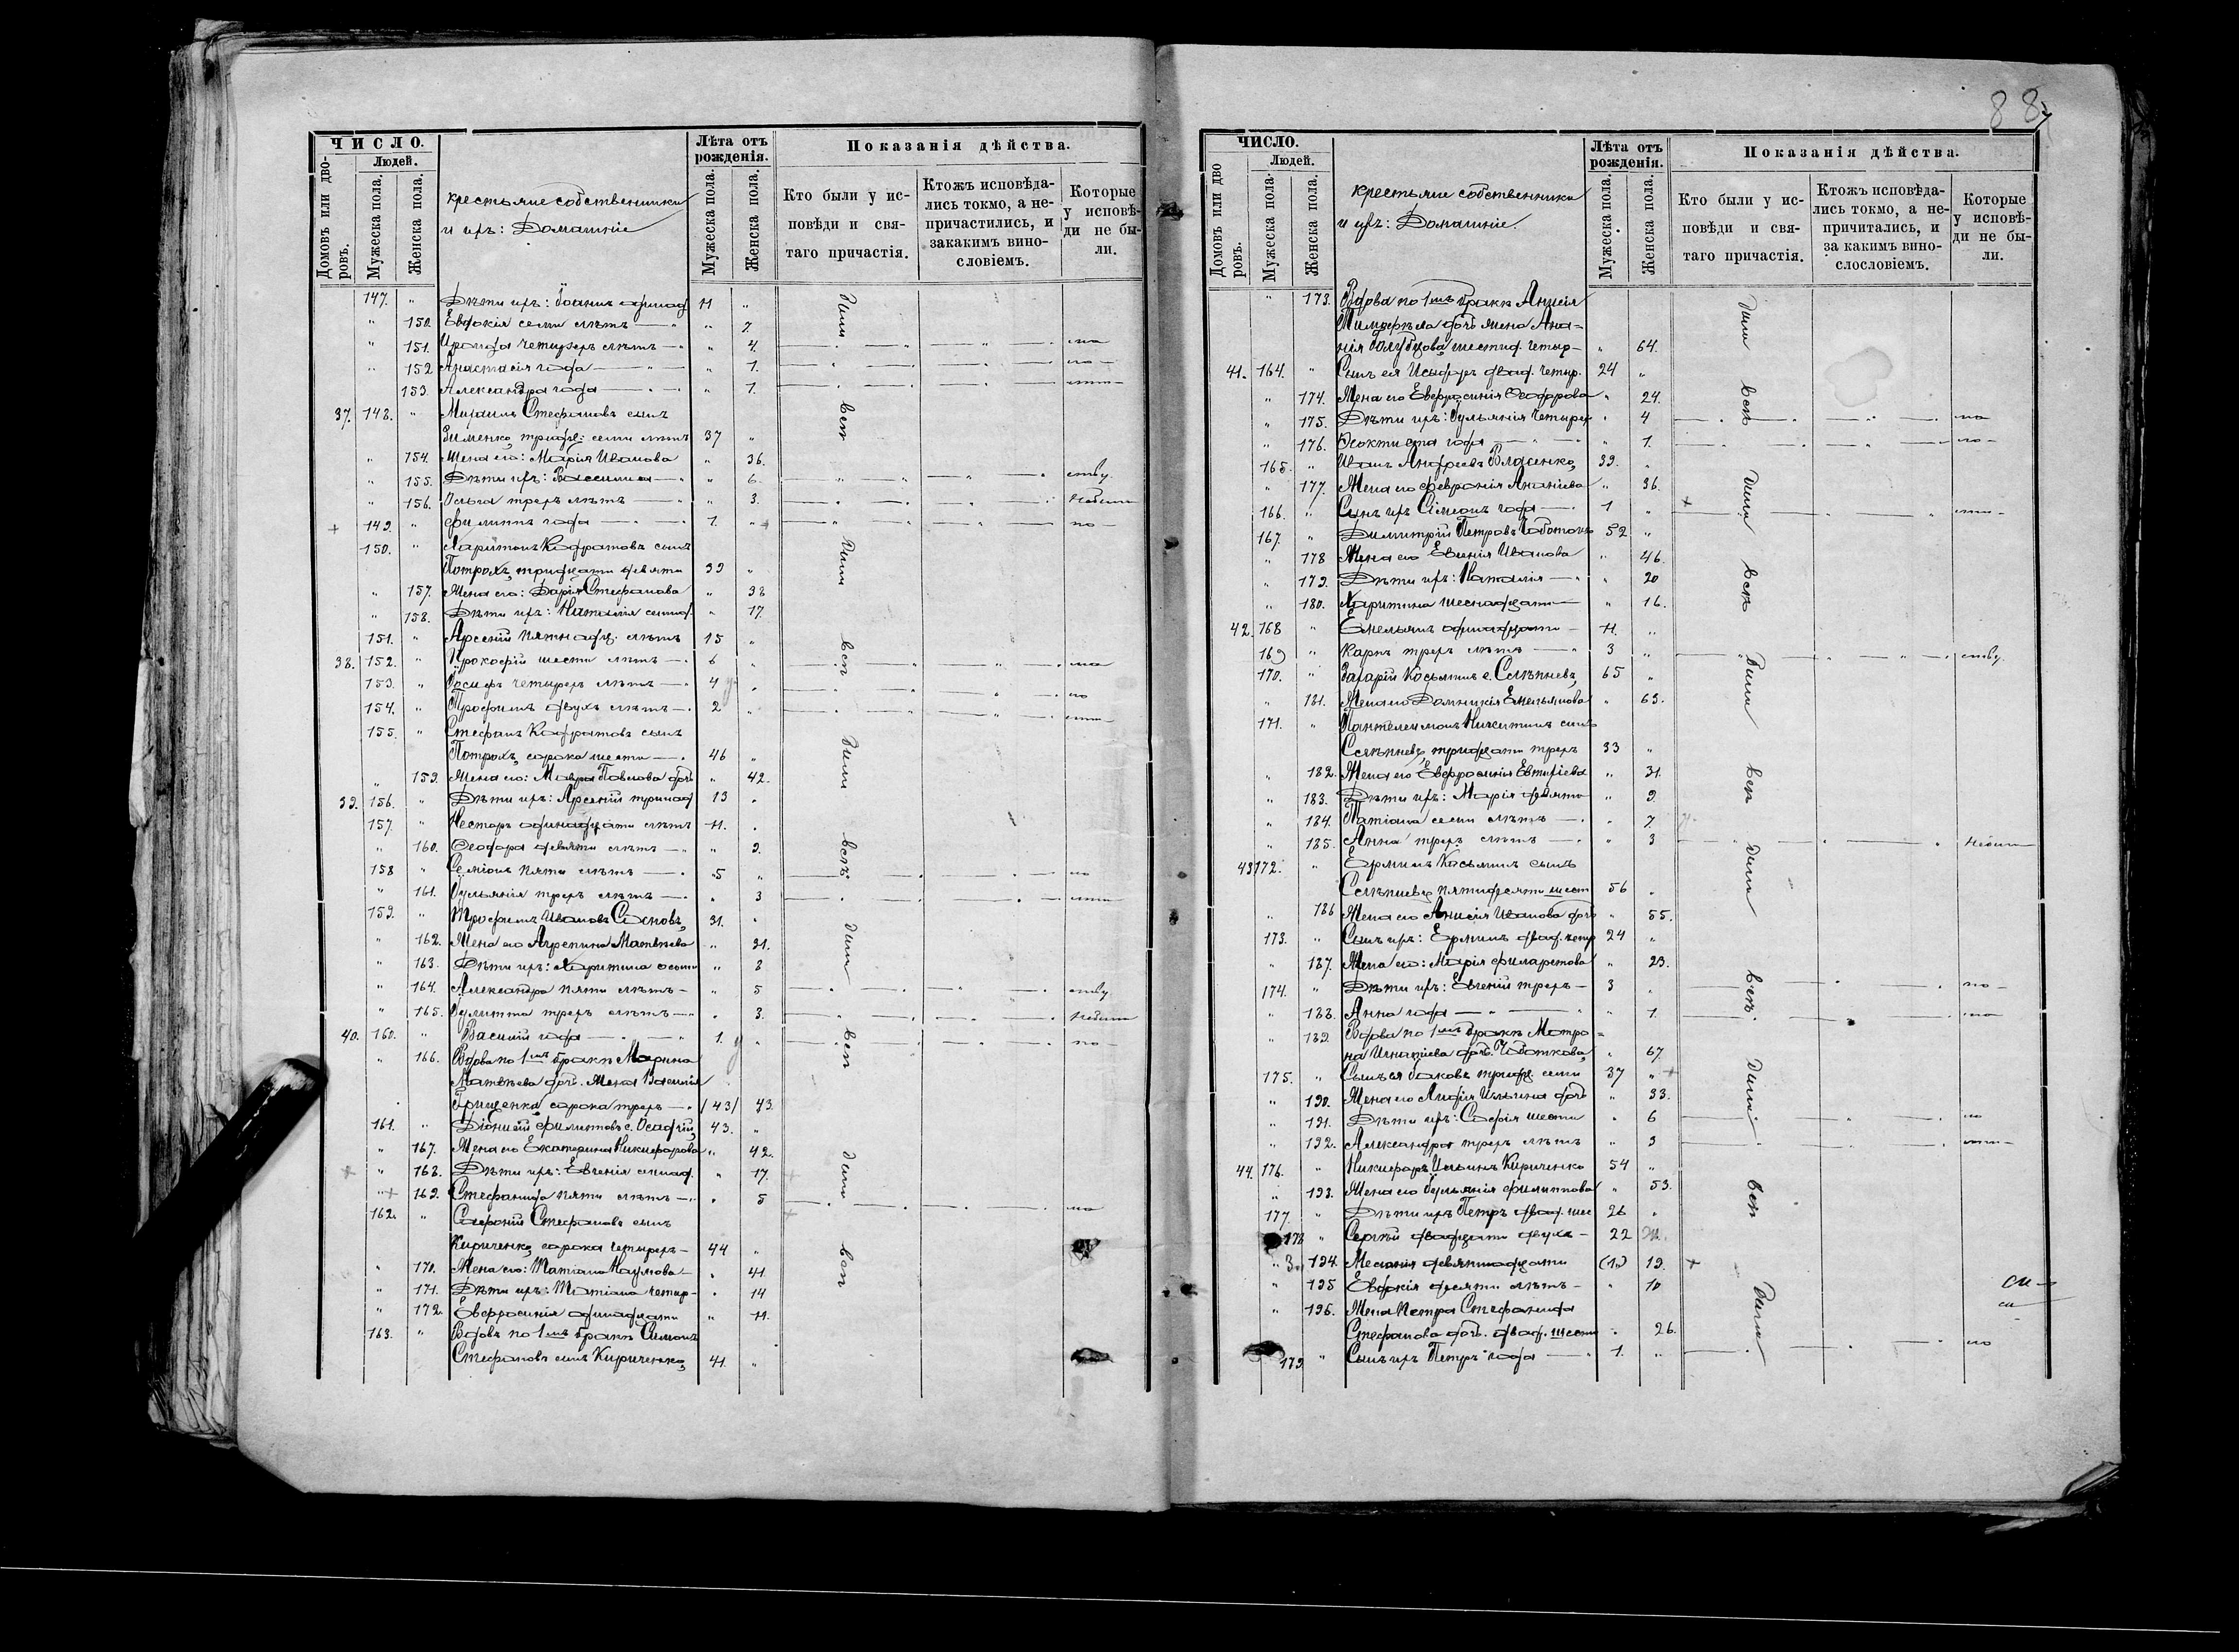 88
ЧИСЛО.
Людей.
Домовъ или дворовъ.
Мужеска пола.
Женска пола.
крестьяне собственники
и ихъ: Домашніе
Лѣта отъ рожденія.
Мужеска пола.
Женска пола.
Показанія дѣйства.
Кто были у исповѣди и святаго причастія.
Ктожъ исповѣдались токмо, а непричастились, и закакимъ винословіемъ.
Которые у исповѣди не были.
147. " Дѣти ихъ: Іоаннъ одинад 11 "
" 150. Евдокія семи лѣтъ — " 7.
" 151. Ираида четырехъ лѣтъ — " 4. по
" 152 Анастасія года — " 1. по —
153. Александра года — " 1.
37. 148. " Михаилъ Стефановъ сынъ
Зименко, тридц: семи лѣтъ 37 "
" 154. Жена его: Марія Иванова " 36.
" 155. Дѣти ихъ: Вассилиса — " 6.
" 156. Ольга трехъ лѣтъ — " 3.
+ 149. " Филиппъ года — 1. " по —
150. " Харитонъ Кодратовъ сынъ
Потрохъ, тридцати девяти 39 "
" 157. Жена его: Дарія Стефанова " 38
" 158. Дѣти ихъ: Наталія семнад " 17.
151. " Арсеній пятнадц: лѣтъ 15 "
38. 152. " Прокофій шести лѣтъ — 6 "
153. " Іосифъ четырехъ лѣтъ — 4 " по
154. " Трофимъ двухъ лѣтъ — 2 "
155. " Стефанъ Кодратовъ сынъ
Потрохъ, сорока шести — 46 "
" 159. Жена его: Мавра Павлова доч " 42.
39. 156. " Дѣти ихъ: Арсеній тринад 13 "
157. " Несторъ одинадцати лѣтъ 11. "
" 160. Ѳеодора девяти лѣтъ — " 9.
158 " Семіонъ пяти лѣтъ — 5 " по
" 161. Іульянія трехъ лѣтъ — " 3
159. " Трофимъ Ивановъ Сосновъ, 31. "
" 162. Жена его Агрепина Матвѣева " 31.
" 163. Дѣти ихъ: Харитина осьми " 8
" 164. Александра пяти лѣтъ — " 5
" 165. Іулитта трехъ лѣтъ — " 3.
40. 160. " Василій года — 1. " по —
" 166. Вдова по 1мъ бракѣ Марина
Матвѣева доч. Жена Василія
Грищенка сорока трехъ — (43) 43.
161. " Діонисій Филиповъ с. Осадчій, 43. "
" 167. Жена его Екатерина Никифорова " 42.
+ " 168. Дѣти ихъ: Евгенія семнад. " 17.
"+ 169. Стефанида пяти лѣтъ — " 5
162. " Софоній Стефановъ сынъ
Кириченко, сорока четырехъ — 44 "
" 170. Жена его: Татіана Наумова — " 41.
" 171. Дѣти ихъ: Татіана четыр — " 14
" 172. Евфросинія одинадцати " 11.
163. " Вдовъ по 1мъ бракѣ Симонъ
Стефановъ сынъ Кириченко, 41. "
ЧИСЛО.
Людей.
Домовъ или дво ровъ.
Мужеска пола.
Женска пола.
крестьяне собственники
и ихъ: Домашніе.
Лѣта отъ рожденія.
Мужеска пола.
Женска пола.
Показанія дѣйства.
Кто были у исповѣди и святаго причастія.
Ктожъ исповѣдались токмо, а непричитались, и за какимъ винослословіемъ.
Которые у исповѣди не были.
" 173. Вдова по 1мъ бракѣ Анисія
Тимофѣева доч. жена Ана=
нія Голубцова, шестид. четыр — " 64.
41. 164. " Сынъ ея Исидоръ двад. четыр. 24 "
" 174. Жена его Евфросинія Ѳеодорова " 24.
" 175. Дѣти ихъ: Іульянія четырех " 4
" 176. Ѳеоктиста года — " 1. по —
165. " Иванъ Андреевъ Власенко, 39. "
" 177. Жена его Февронія Ананіева " 36.
166. " Сынъ ихъ Сімеонъ года — 1 "
167. " Димитрій Петровъ Чоботокъ 52 "
" 178 Жена его Евгенія Иванова " 46.
" 179. Дѣти ихъ: Наталія — " 20
" 180. Харитина шеснадцати — " 16.
42. 168 " Емельянъ одинадцати — 11. "
169 " Карпъ трехъ лѣтъ — 3 "
170. " Захарій Косьминъ с. Селѣпневъ, 65 "
" 181. Жена его Домникія Емельянова " 63.
171. " Пантелеимонъ Никитинъ сынъ
Селѣпневъ, тридцати трехъ 33 "
" 182. Жена его Евфросинія Евтихіева " 31.
" 183. Дѣти ихъ: Марія девяти " 9.
" 184. Татіана семи лѣтъ — " 7.
" 185. Анна трехъ лѣтъ — " 3
43 172. " Ермилъ Косьминъ сынъ
Селѣпневъ пятидесяти шест 56 "
" 186 Жена его Анисія Иванова доч " 55.
173. " Сынъ ихъ: Ермилъ двад. четыр 24 "
" 187. Жена его: Марія Филаретова " 23.
174. " Дѣти ихъ: Евгеній трехъ — 3 " по —
" 188. Анна года — " 1.
" 189. Вдова по 1мъ бракѣ Матро=
на Игнатіева доч. Чоботкова, " 67.
175. " Сынъ ея Іаковъ тридц. семи 37 " +
" 190. Жена его Лидія Ильина доч " 33.
" 191. Дѣти ихъ: Софія шести " 6 по
" 192. Александра трехъ лѣтъ " 3
44. 176. " Никифоръ Ильинъ Кириченко 54 "
" 193. Жена его Іульянія Филиппова " 53.
177. " Дѣти ихъ Петръ двад. шес 26 "
178 " Сергій двадцати двухъ — 22
" 194. Меланія девятнадцати 19. +
" 195 Евдокія десяти лѣтъ — " 10
" 196. Жена Петра Стефанида
Стефанова доч. двад. шести " 26.
179 " Сынъ ихъ Петръ года — 1. " по